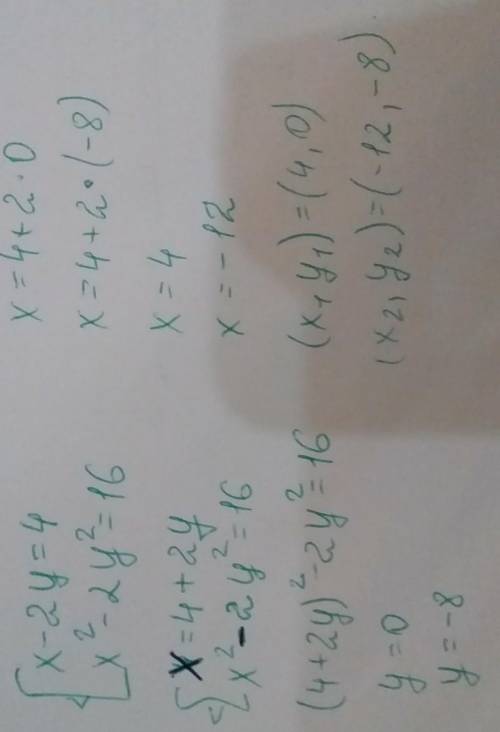 x-2y=4
x²-2y²=16
x=4+2y
x²-2y²=16
(4+2y)²-2y²=16
y=0
y=-8
x=4+2·0
x=4+2·(-8)
x=4
x=-12
(x₁,y₁)=(4,0)
(x₂,y₂)=(-12,-8)